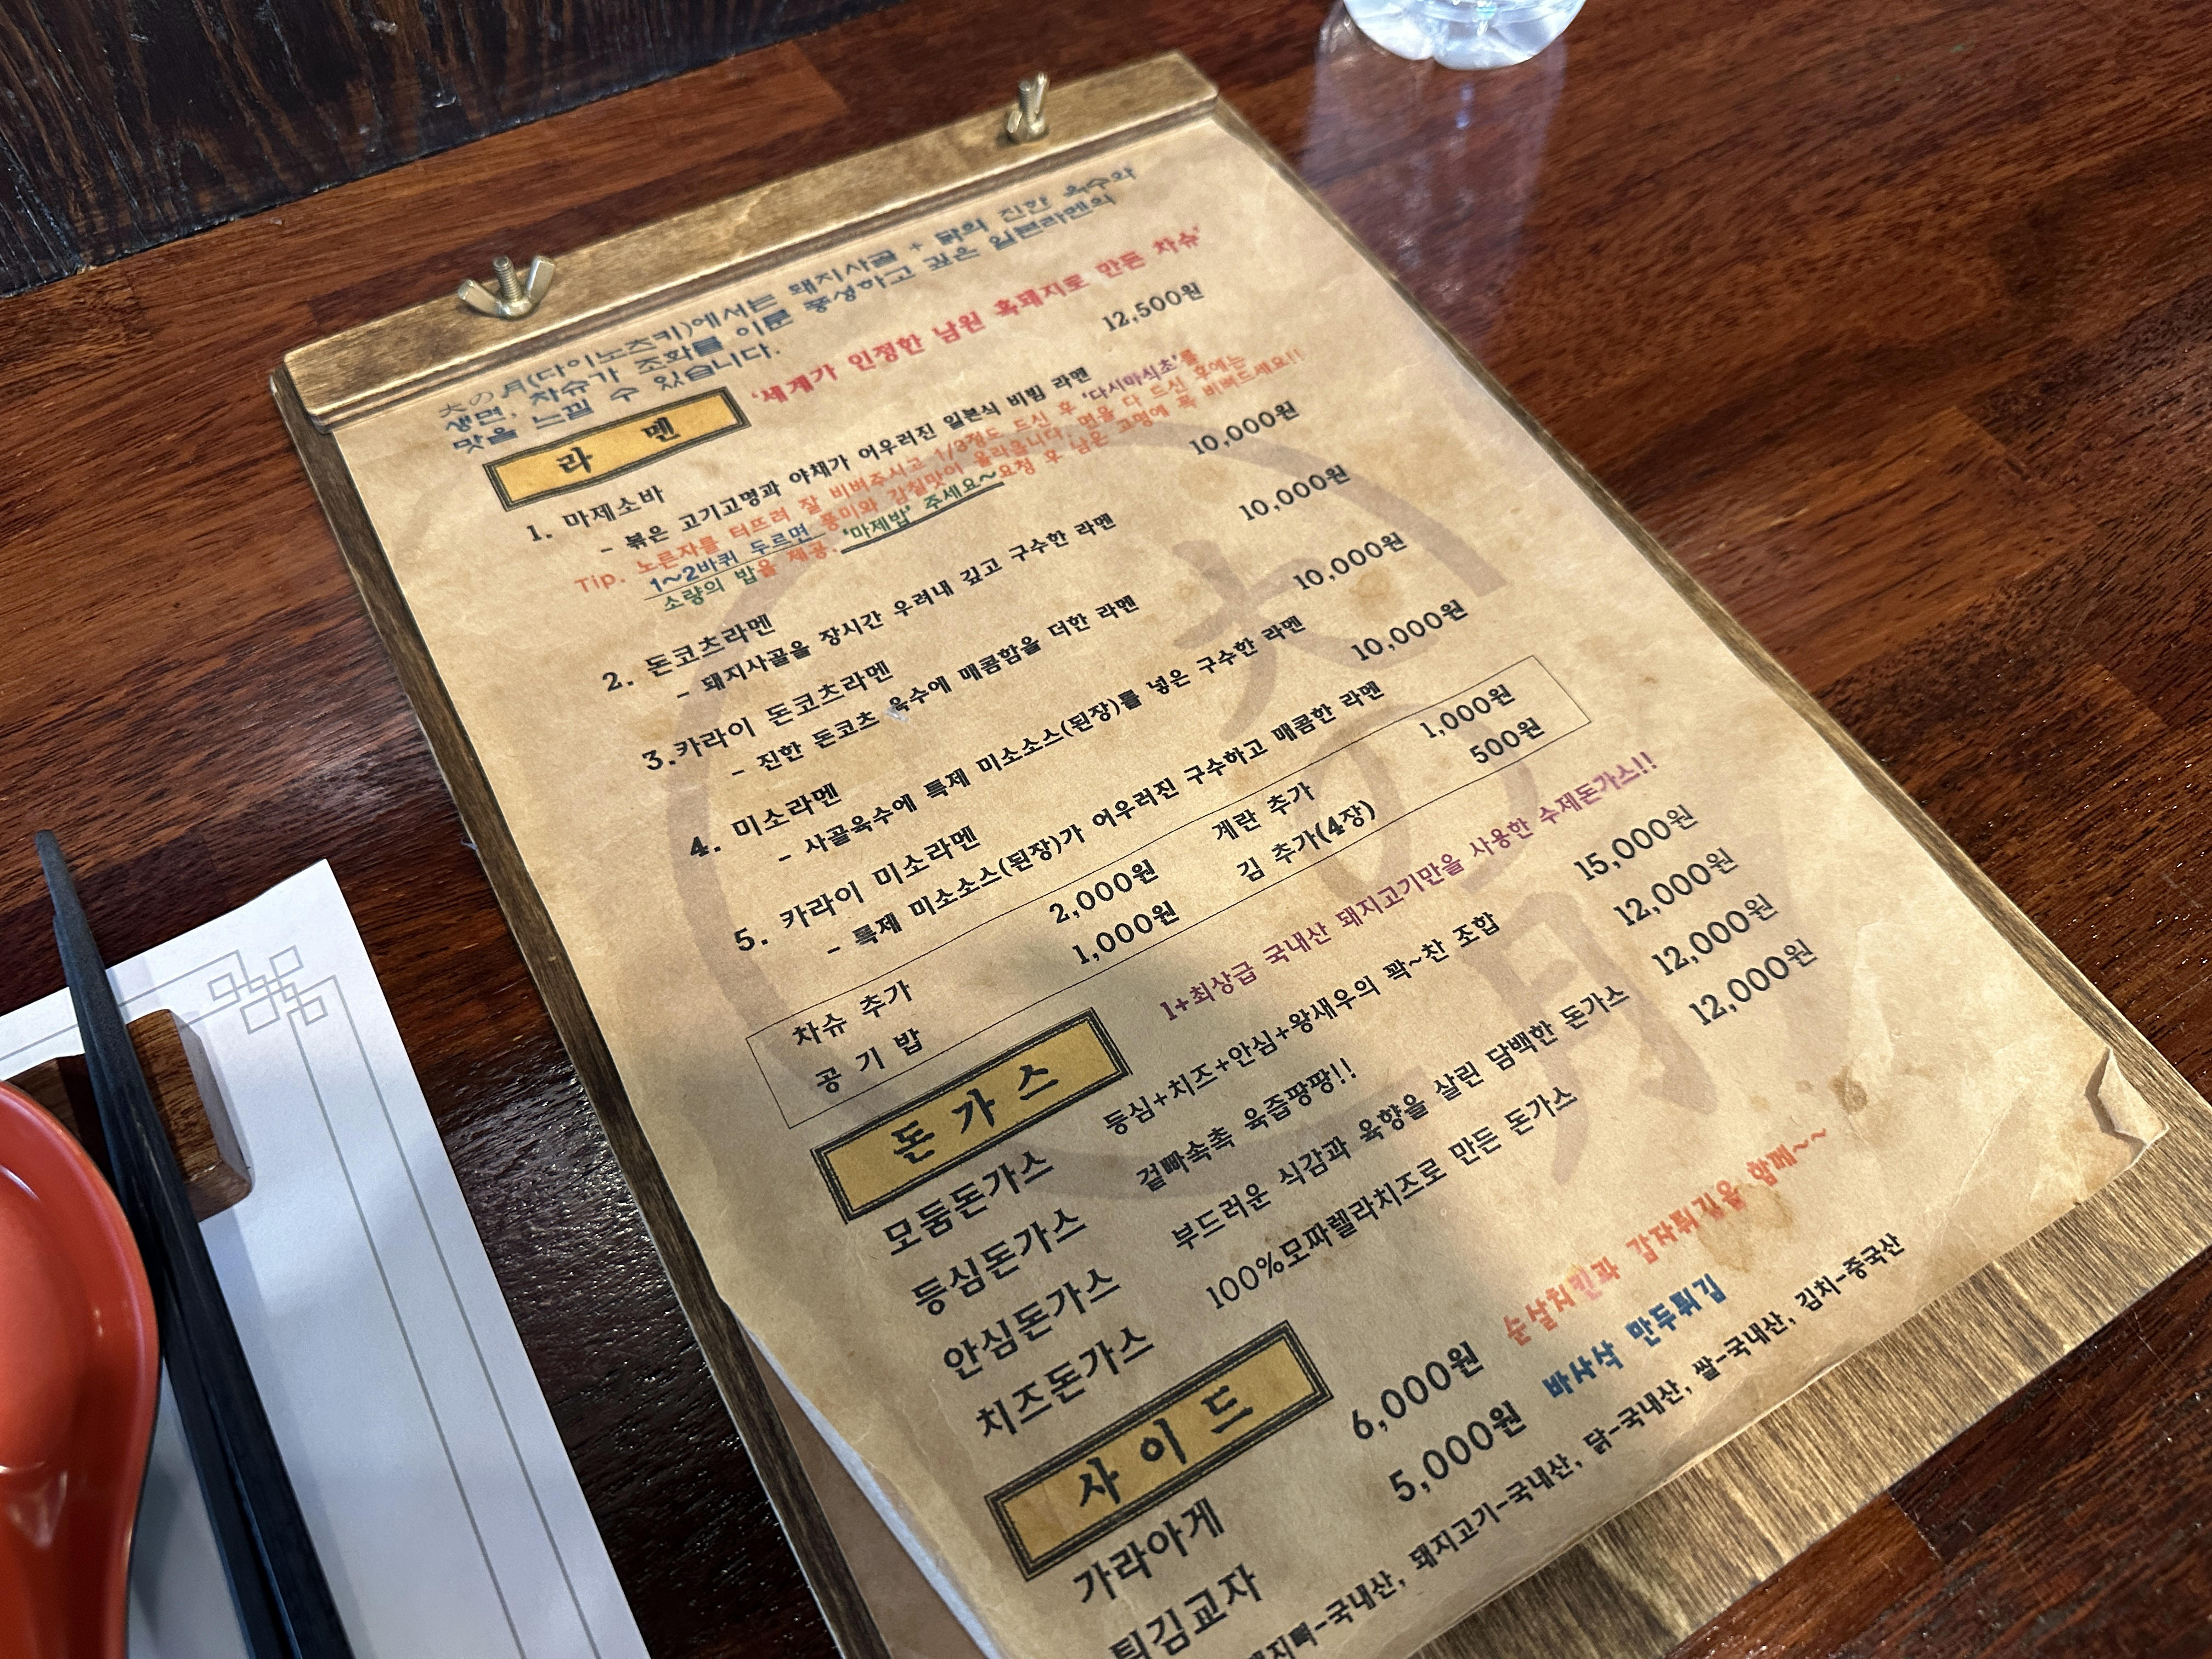 大の月(다이노츠키)에서는 돼지사골 + 닭의 진한 육수와
생면, 차슈가 조화를 이룬 풍성하고 깊은 일본라멘의
맛을 느낄 수 있습니다.
라 멘
'세계가 인정한 남원 흑돼지로 만든 차슈'
1. 마제소바 12,500원
- 볶은 고기고명과 야채가 어우러진 일본식 비빔 라멘
Tip. 노른자를 터뜨려 잘 비벼주시고 1/3정도 드신 후 '다시마식초'를
1~2바퀴 두르면 풍미와 감칠맛이 올라옵니다. 면을 다 드신 후에는
소량의 밥을 제공. '마제밥' 주세요~요청 후 남은 고명에 푹 비벼드세요!!
2. 돈코츠라멘 10,000원
- 돼지사골을 장시간 우려내 깊고 구수한 라멘
3.카라이 돈코츠라멘 10,000원
- 진한 돈코츠 육수에 매콤함을 더한 라멘
4. 미소라멘 10,000원
- 사골육수에 특제 미소소스(된장)를 넣은 구수한 라멘
5. 카라이 미소라멘 10,000원
- 특제 미소소스(된장)가 어우러진 구수하고 매콤한 라멘
차슈 추가 2,000원 계란 추가 1,000원
공 기 밥 1,000원 김 추가(4장) 500원
돈 가 스
1+최상급 국내산 돼지고기만을 사용한 수제돈가스!!
모둠돈가스 등심+치즈+안심+왕새우의 꽉~찬 조합 15,000원
등심돈가스 겉빠속촉 육즙팡팡!! 12,000원
안심돈가스 부드러운 식감과 육향을 살린 담백한 돈가스 12,000원
치즈돈가스 100%모짜렐라치즈로 만든 돈가스 12,000원
사 이 드
가라아게 6,000원 순살치킨과 감자튀김을 함께~~
튀김교자 5,000원 바사삭 만두튀김
돼지뼈-국내산, 돼지고기-국내산, 닭-국내산, 쌀-국내산, 김치-중국산
大の月